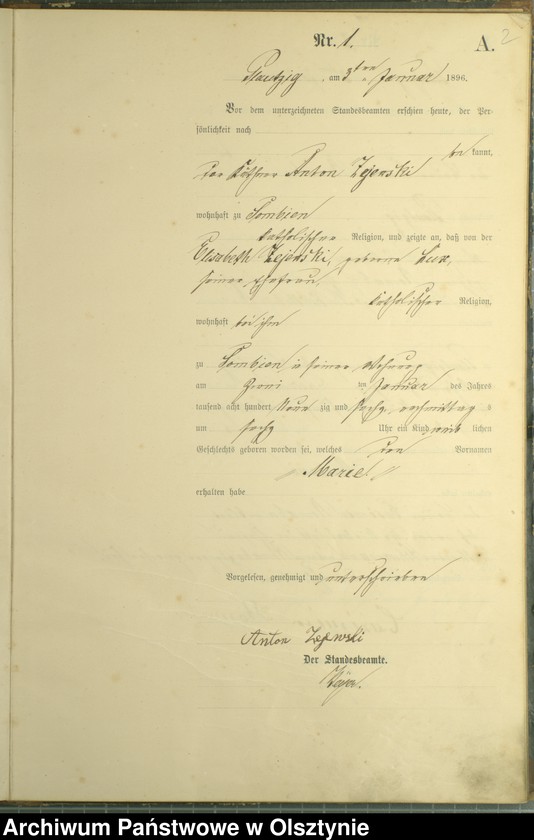 Nr. 1. A. 2
am 3ten Januar 1896.
Vor dem unterzeichneten Standesbeamten erschien heute, der Per-
sönlichkeit nach
be kannt,
der Käthner Anton Zejewski
wohnhaft zu Sombien
katholischer Religion, und zeigte an, daß von der
Elisabeth Zejewski, geborene Lux,
seiner Ehefrau
katholischer Religion,
wohnhaft bei ihm
zu Sombien in seiner Wohnung
am zwei ten Januar des Jahres
tausend acht hundert Neun zig und sechs, nachmittag s
um sechs Uhr ein Kind weib lichen
Geschlechts geboren worden sei, welches den Vornamen
Marie
erhalten habe
Vorgelesen, genehmigt und unterschrieben
Anton Zejewski
Der Standesbeamte.
Archiwum Państwowe w Olsztynie